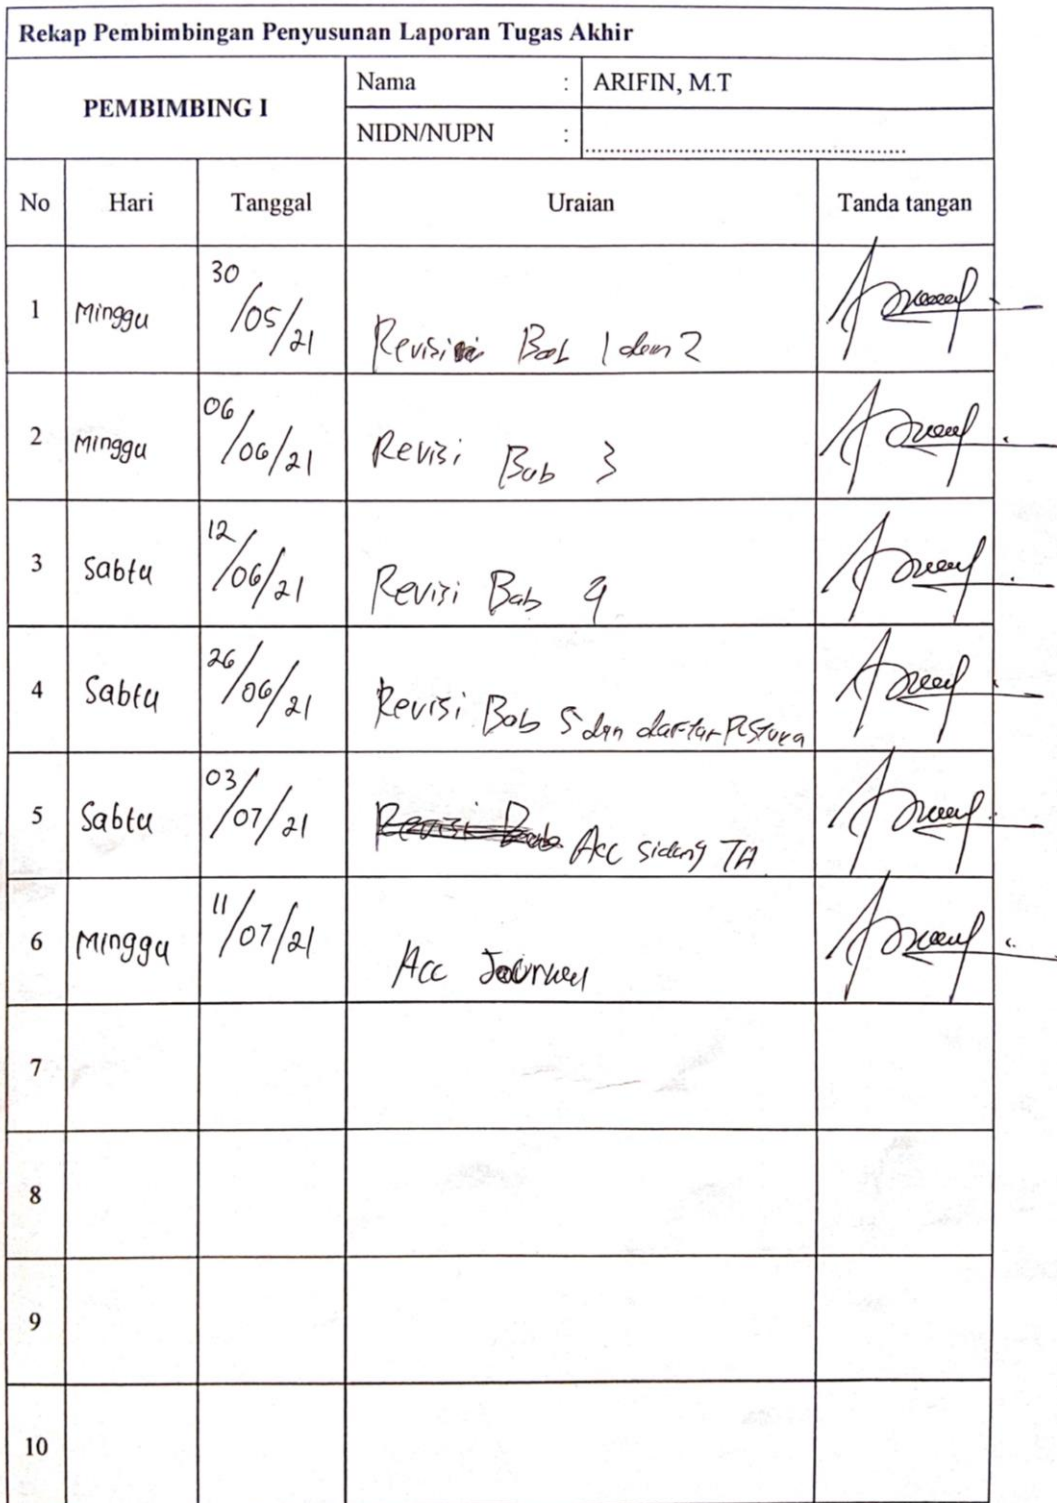 Rekap Pembimbingan Penyusunan Laporan Tugas Akhir
PEMBIMBING I
Nama : ARIFIN, M.T
NIDN/NUPN : ..............................................
No Hari Tanggal Uraian Tanda tangan
1 Minggu 30/05/21 Revisi Bab 1 dan 2
2 Minggu 06/06/21 Revisi Bab 3
3 Sabtu 12/06/21 Revisi Bab 4
4 Sabtu 26/06/21 Revisi Bab 5 dan daftar Pustuka
5 Sabtu 03/07/21 Acc sidang TA
6 Minggu 11/07/21 Acc Journal
7
8
9
10